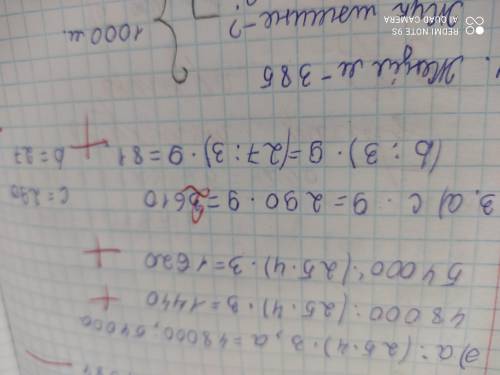 д) a : (25 · 4) · 3, a = 48000; 54000
48000 : (25 · 4) · 3 = 1440 +
54000 : (25 · 4) · 3 = 1620 +
3. a) c · 9 = 290 · 9 = 2610 c = 290
(b : 3) · 9 = (27 : 3) · 9 = 81 + b = 27
385
1000
REDMI NOTE 9S
AI QUAD CAMERA